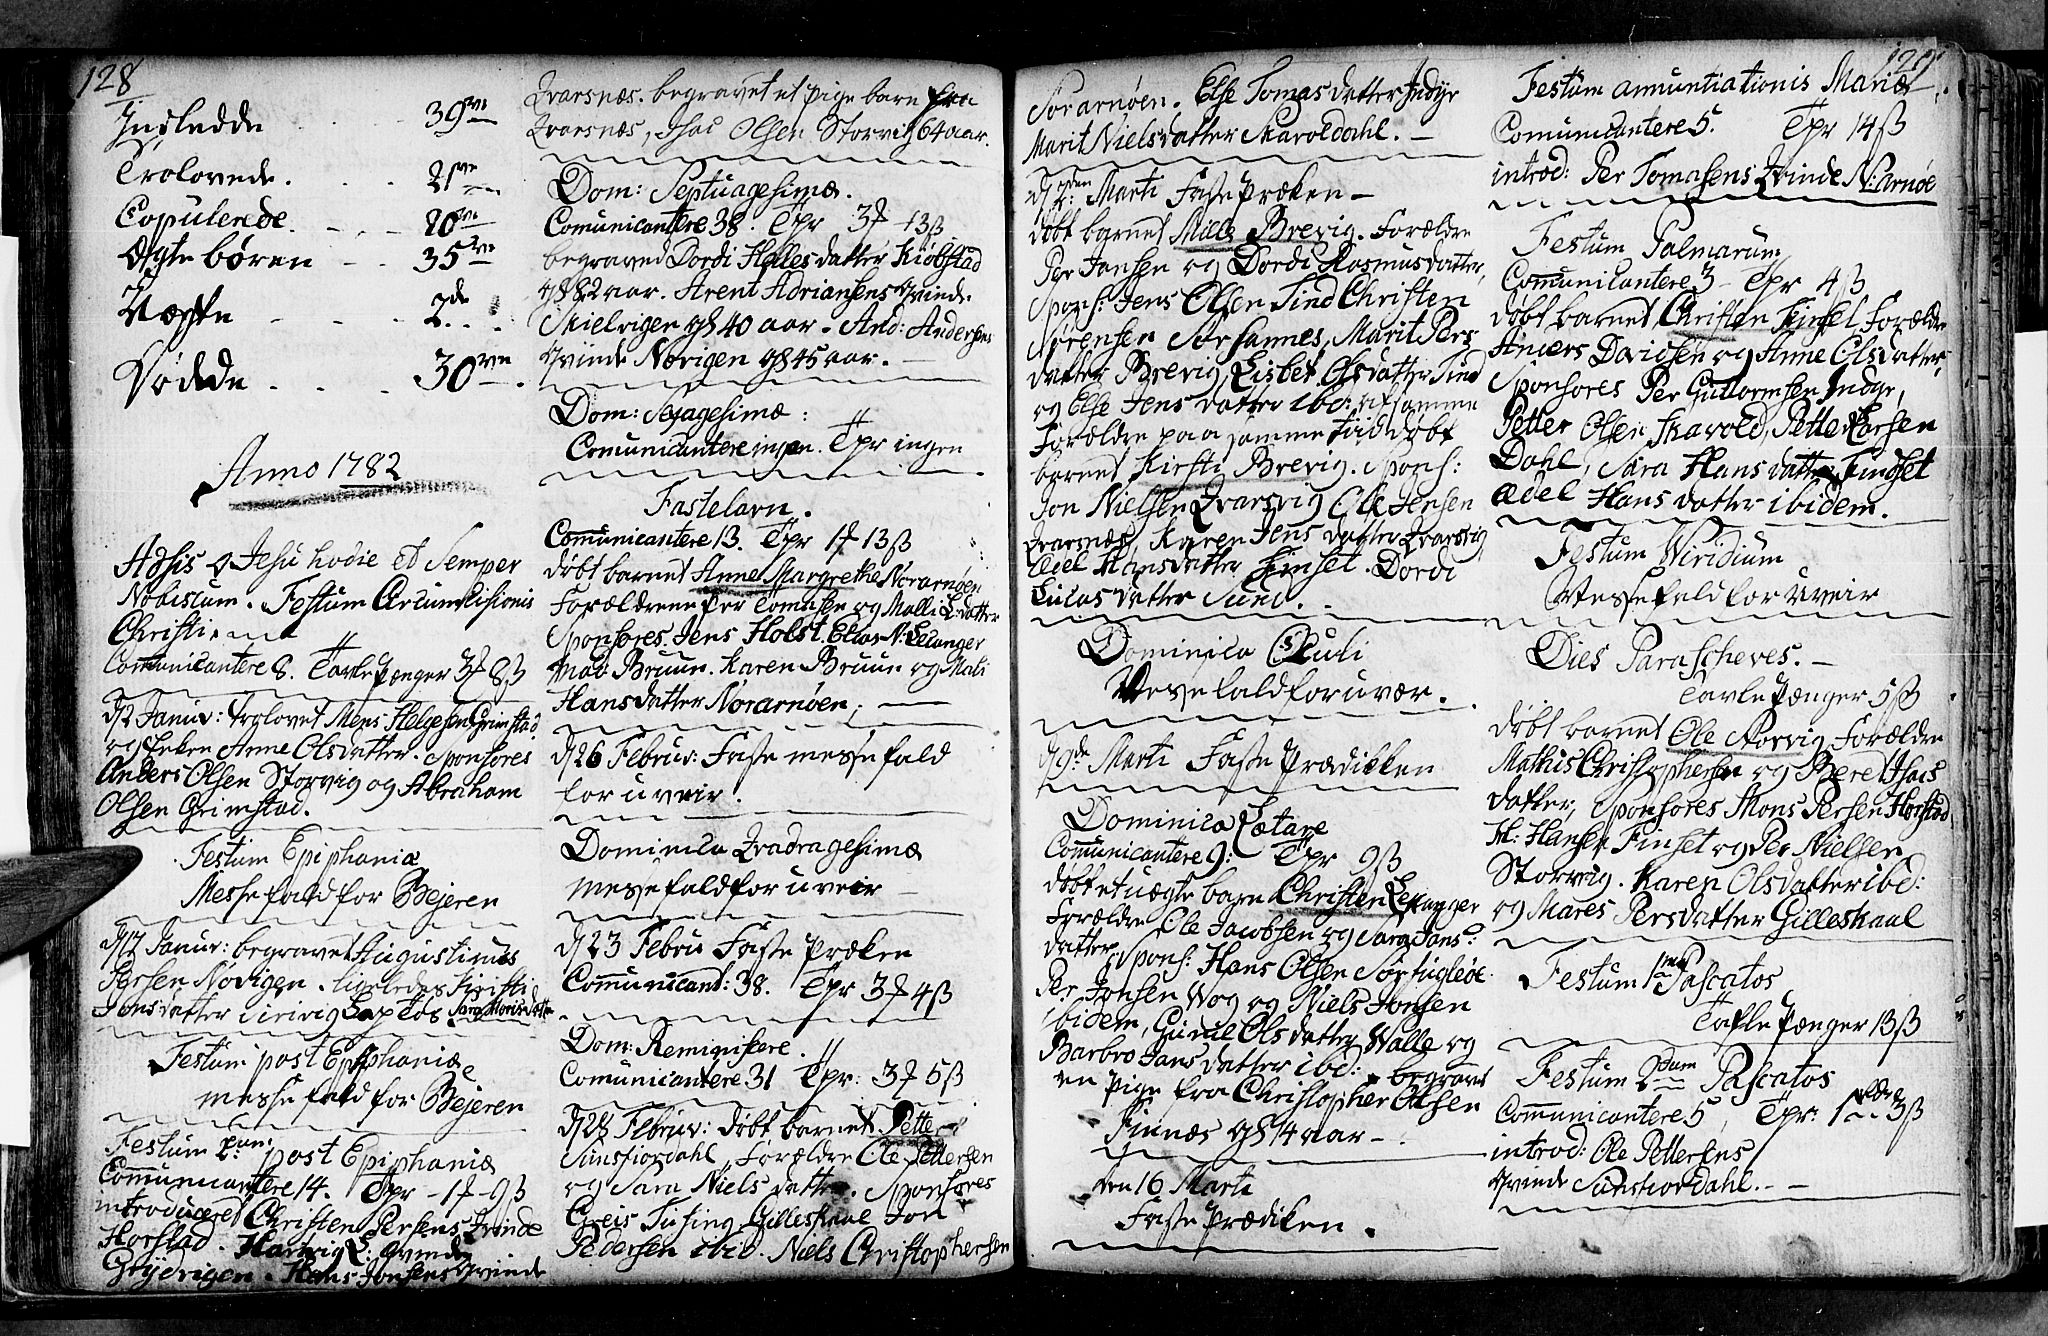 128
Indledde . . . . 39ve
Trolovede . . . . 21ve
Copulerede . . . 20ve
Ægte børen - - 35ve
Uægte - - - - 2de
Dødde . . . . 30ve
Anno 1782
Adsis o Jesu hodie et Semper
Nobiscum. Festum Circumcisionis
Christi
Comunicantere 8. Tavle Pænger 3f 8ß
d 2 Janur: trolovet Mens Helgesen Grimstad
og Anne Olsdatter. Sponsores
Anders Olsen Storvig og Abraham
Olsen Grimstad.
Festum Epiphaniæ
Messefald for Bejeren
d 17 Janur: begravet Augustinus
Persen Nøvigen.
Jonsdatter
Festum post Epiphaniæ
messefald for Bejeren
Festum post Epiphaniæ
Comunicantere 14. Tpr - 1f - 9ß
introduceret Christen Persens Qvinde
Horstad. Hartvig L: Qvinde
Hans Jonsens Qvinde
Qvarsnæs. begravet et pige barn fra
Qvarsnæs, Isac Olsen Storvig 64 aar.
Dom: Septuagesimæ.
Comunicantere 38. Tpr 3f - 13ß
begraved Dordi Hellesdatter Kiøbstad
gl 82 aar. Arent Adriansens Qvinde
Skielvigen gl 40 aar. And: Andersens
Qvinde Norvigen gl 45 aar. -
Dom: Sexagesimæ:
Comunicantere ingen. Tpr ingen
Fastelavn.
Comunicantere 13. Tpr 1f 13ß
døbt barnet Anne Margrethe Nørarnøen
Forældrene Per Tomasen og Malli L:datter
Sponsores Jens Holst. Elias N: Levanger
Mad Bruun. Karen Bruun og Mali
Hansdatter Nørarnøen; -
d 26 Februr: Faste messefald
for uveir.
Dominica Qvadragesimæ
messefald for uveir -
d 23 Febru Faste Præken
Comunicant: 38. Tpr 3f 4ß
Dom: Reminiscere.
Comunicantere 31 Tpr: 3f 5ß
d 28 Februr: døbt barnet Petter
Sunsfiordahl, Forældre Ole Pettersen
og Sara Nielsdatter. Sponsores
Greis Tusing Gilleskaal Jon
Pedersen ibid. Niels Christophersen
129
Sørarnøen. Else Tomasdatter Indyr
Marit Nielsdatter Skavoldahl. -
d 2den Marti Faste Præken -
døbt barnet Mille Brevig. Forældre
Per Jansen og Dordi Rasmusdatter,
Spons: Jens Olsen Sund Christen
Sørensen Sørsannes, Marit Pers
datter Brevig, Lisbet Olsdatter Sund
og Else Jensdatter ibd: af samme
Forældre paa samme tiid døbt
barnet Kirsti Brevig. Spons:
Jon Nielsen Qvarsvig Ole Jensen
Qvarsnæs, Karen Jensdatter Qvarsvig
Ædel Hansdatter Finset. Dordi
Lucasdatter Sund.
Dominica Oculi
Messefald for uvær.
d 9de Marti Faste Prædikken
Dominica Lætare
Comunicantere 9: Tpr 9ß
døbt et uægte barn Christen
Forældre Ole Jacobsen og Sara Jans
datter, Spons: Hans Olsen Sørfugløe
Per Jonsen Wog og Niels Jonsen
ibidem, Olsdatter Walle og
Barbro Jansdatter ibd: begravet
en pige fra Christopher Olsen
Finnæs gl 14 aar -
den 16 Marti
Faste Prædiken.
Festum annuntiationis Mariæ
Comunicantere 5. Tpr 14ß
introd: Per Tomasens Qvinde N:arnøe
Festum Palmarum
Comunicantere 3 - Tpr 4ß
døbt barnet Christen Finset Forældre
Anders Davidsen og Anne Olsdatter,
Sponsores Per Guttormsen Indyr,
Petter Olsen Skavold, Petter Larsen
Dahl, Sara Hansdatter Findset
Ædel Hansdatter ibidem.
Festum Viridium
Messefald for uveir
Dies Parascheves. -
Tavle Pænger 5ß
døbt barnet Ole Norvig Forældre
Mathis Christophersen og Beret Isacs
datter, Sponsores Mons Persen Horstad
H: Hansen Finset og Per Nielsen
Storvig. Karen Olsdatter ibd:
og Mares Persdatter Gilleskaal
Festum 1me Pascatos
Tafle Pænger 13ß
Festum 2dum Pascatos
Comunicantere 5, Tpr: 3ß
introd: Ole Pettersens
Qvinde Sunsfiordahl. - -